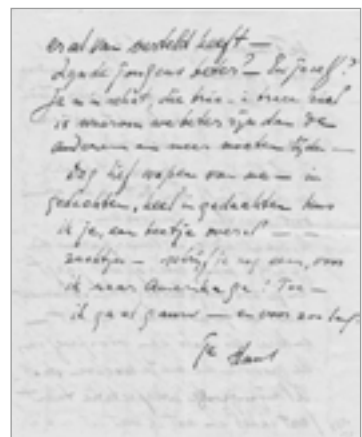 er al van verteld heeft —
Zijn de jongens beter? — En jozef?
je m'n schat,
is waarom we beter zijn dan de
anderen en meer moeten lijden —
Dag lief wapen van me — in
gedachten, heel in gedachten kus
ik je, een beetje overal — —
zachtjes — schrijf je nog eens, voor
ik naar Amerika ga? Toe —
ik ga al gauw — en voor zoo lang
Je Hans